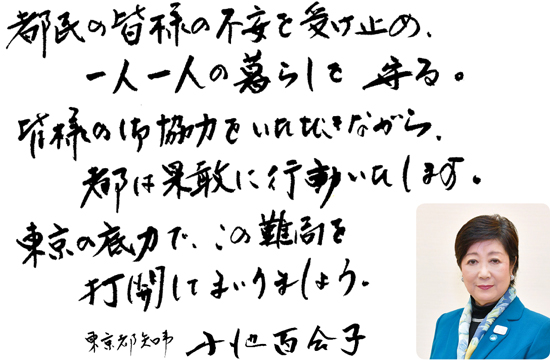 都民の皆様の不安を受け止め、
一人一人の暮らしを守る。
皆様の御協力をいただきながら、
都は果敢に行動いたします。
東京の底力で、この難局を
打開してまいりましょう。
東京都知事 小池百合子